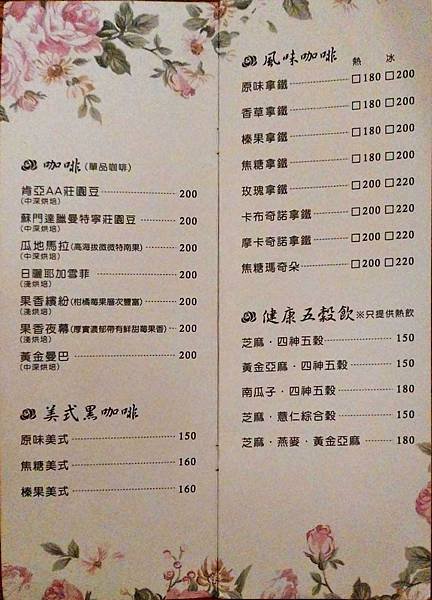 咖啡(單品咖啡)
肯亞AA莊園豆 200
(中深烘培)
蘇門達臘曼特寧莊園豆 200
(中深烘培)
瓜地馬拉(高海拔微微特南果) 200
(中深烘培)
日曬耶加雪菲 200
(淺烘培)
果香繽紛(柑橘莓果層次豐富) 200
(淺烘培)
果香夜幕(厚實濃郁帶有鮮甜莓果香) 200
(淺烘培)
黃金曼巴 200
(中深烘培)
美式黑咖啡
原味美式 150
焦糖美式 160
榛果美式 160
風味咖啡 熱 冰
原味拿鐵 □180 □200
香草拿鐵 □180 □200
榛果拿鐵 □180 □200
焦糖拿鐵 □180 □200
玫瑰拿鐵 □200 □220
卡布奇諾拿鐵 □200 □220
摩卡奇諾拿鐵 □200 □220
焦糖瑪奇朵 □200 □220
健康五穀飲 ※只提供熱飲
芝麻．四神五穀 150
黃金亞麻．四神五穀 150
南瓜子．四神五穀 150
芝麻．薏仁綜合穀 150
芝麻．燕麥．黃金亞麻 180